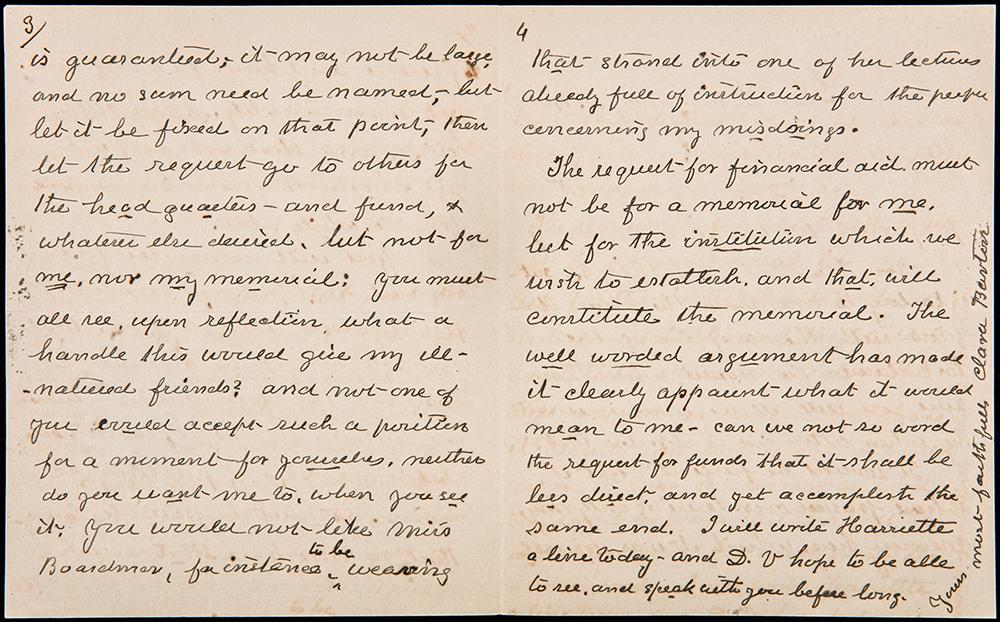 3/
is guaranteed; it may not be large,
and no sum need be named, - but
let it be fixed on that point, then
let the request go to others for
the head quarters - and fund, &
whatever else desired, but not for
me, nor my memorial: You must
all see, upon reflection, what a
handle this would give my ill-
-natured friends? and not one of
you would accept such a position
for a moment for yourselves, neither
do you want me to, when you see
it. You would not like Miss
Boardman, for instance, to be weaving
4
that strand into one of her lectures
already full of instruction for the people
concerning my misdoings.
The request for financial aid must
not be for a memorial for me,
but for the institution which we
wish to establish, and that, will
constitute the memorial. The
well worded argument has made
it clearly apparent what it would
mean to me - can we not so word
the request for funds that it shall be
less direct, and yet accomplish the
same end. I will write Harriette
a line today - and D. V hope to be able
to see, and speak with you before long.
Yours most faithfully Clara Barton